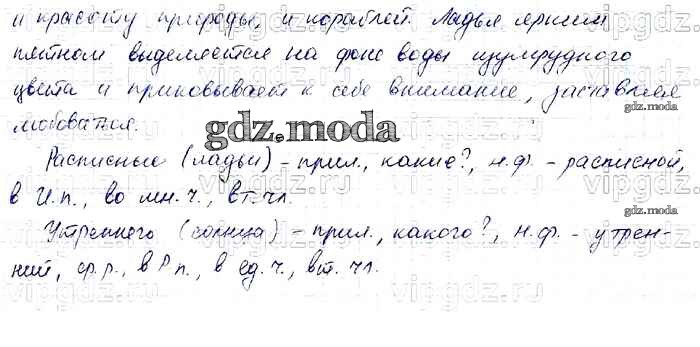 и красоту природы, и кораблей. Ладья ярким
пятном выделяется на фоне воды изумрудного
цвета и приковывает к себе внимание, заставляя
любоваться.
gdz.moda
Расписные (ладьи) – прил., какие?, н.ф. – расписной,
в И.п., во мн.ч., вт.чл.
gdz.moda
Утреннего (солнца) – прил., какого?, н.ф. – утрен-
ний, ср.р., в Р.п., в ед.ч., вт. чл.
gdz.moda
vipgdz.ru